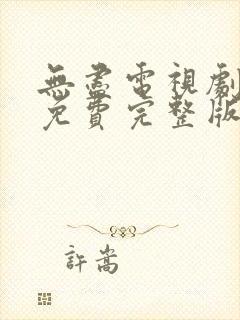 無盡電視劇
免費完整版
許嵩